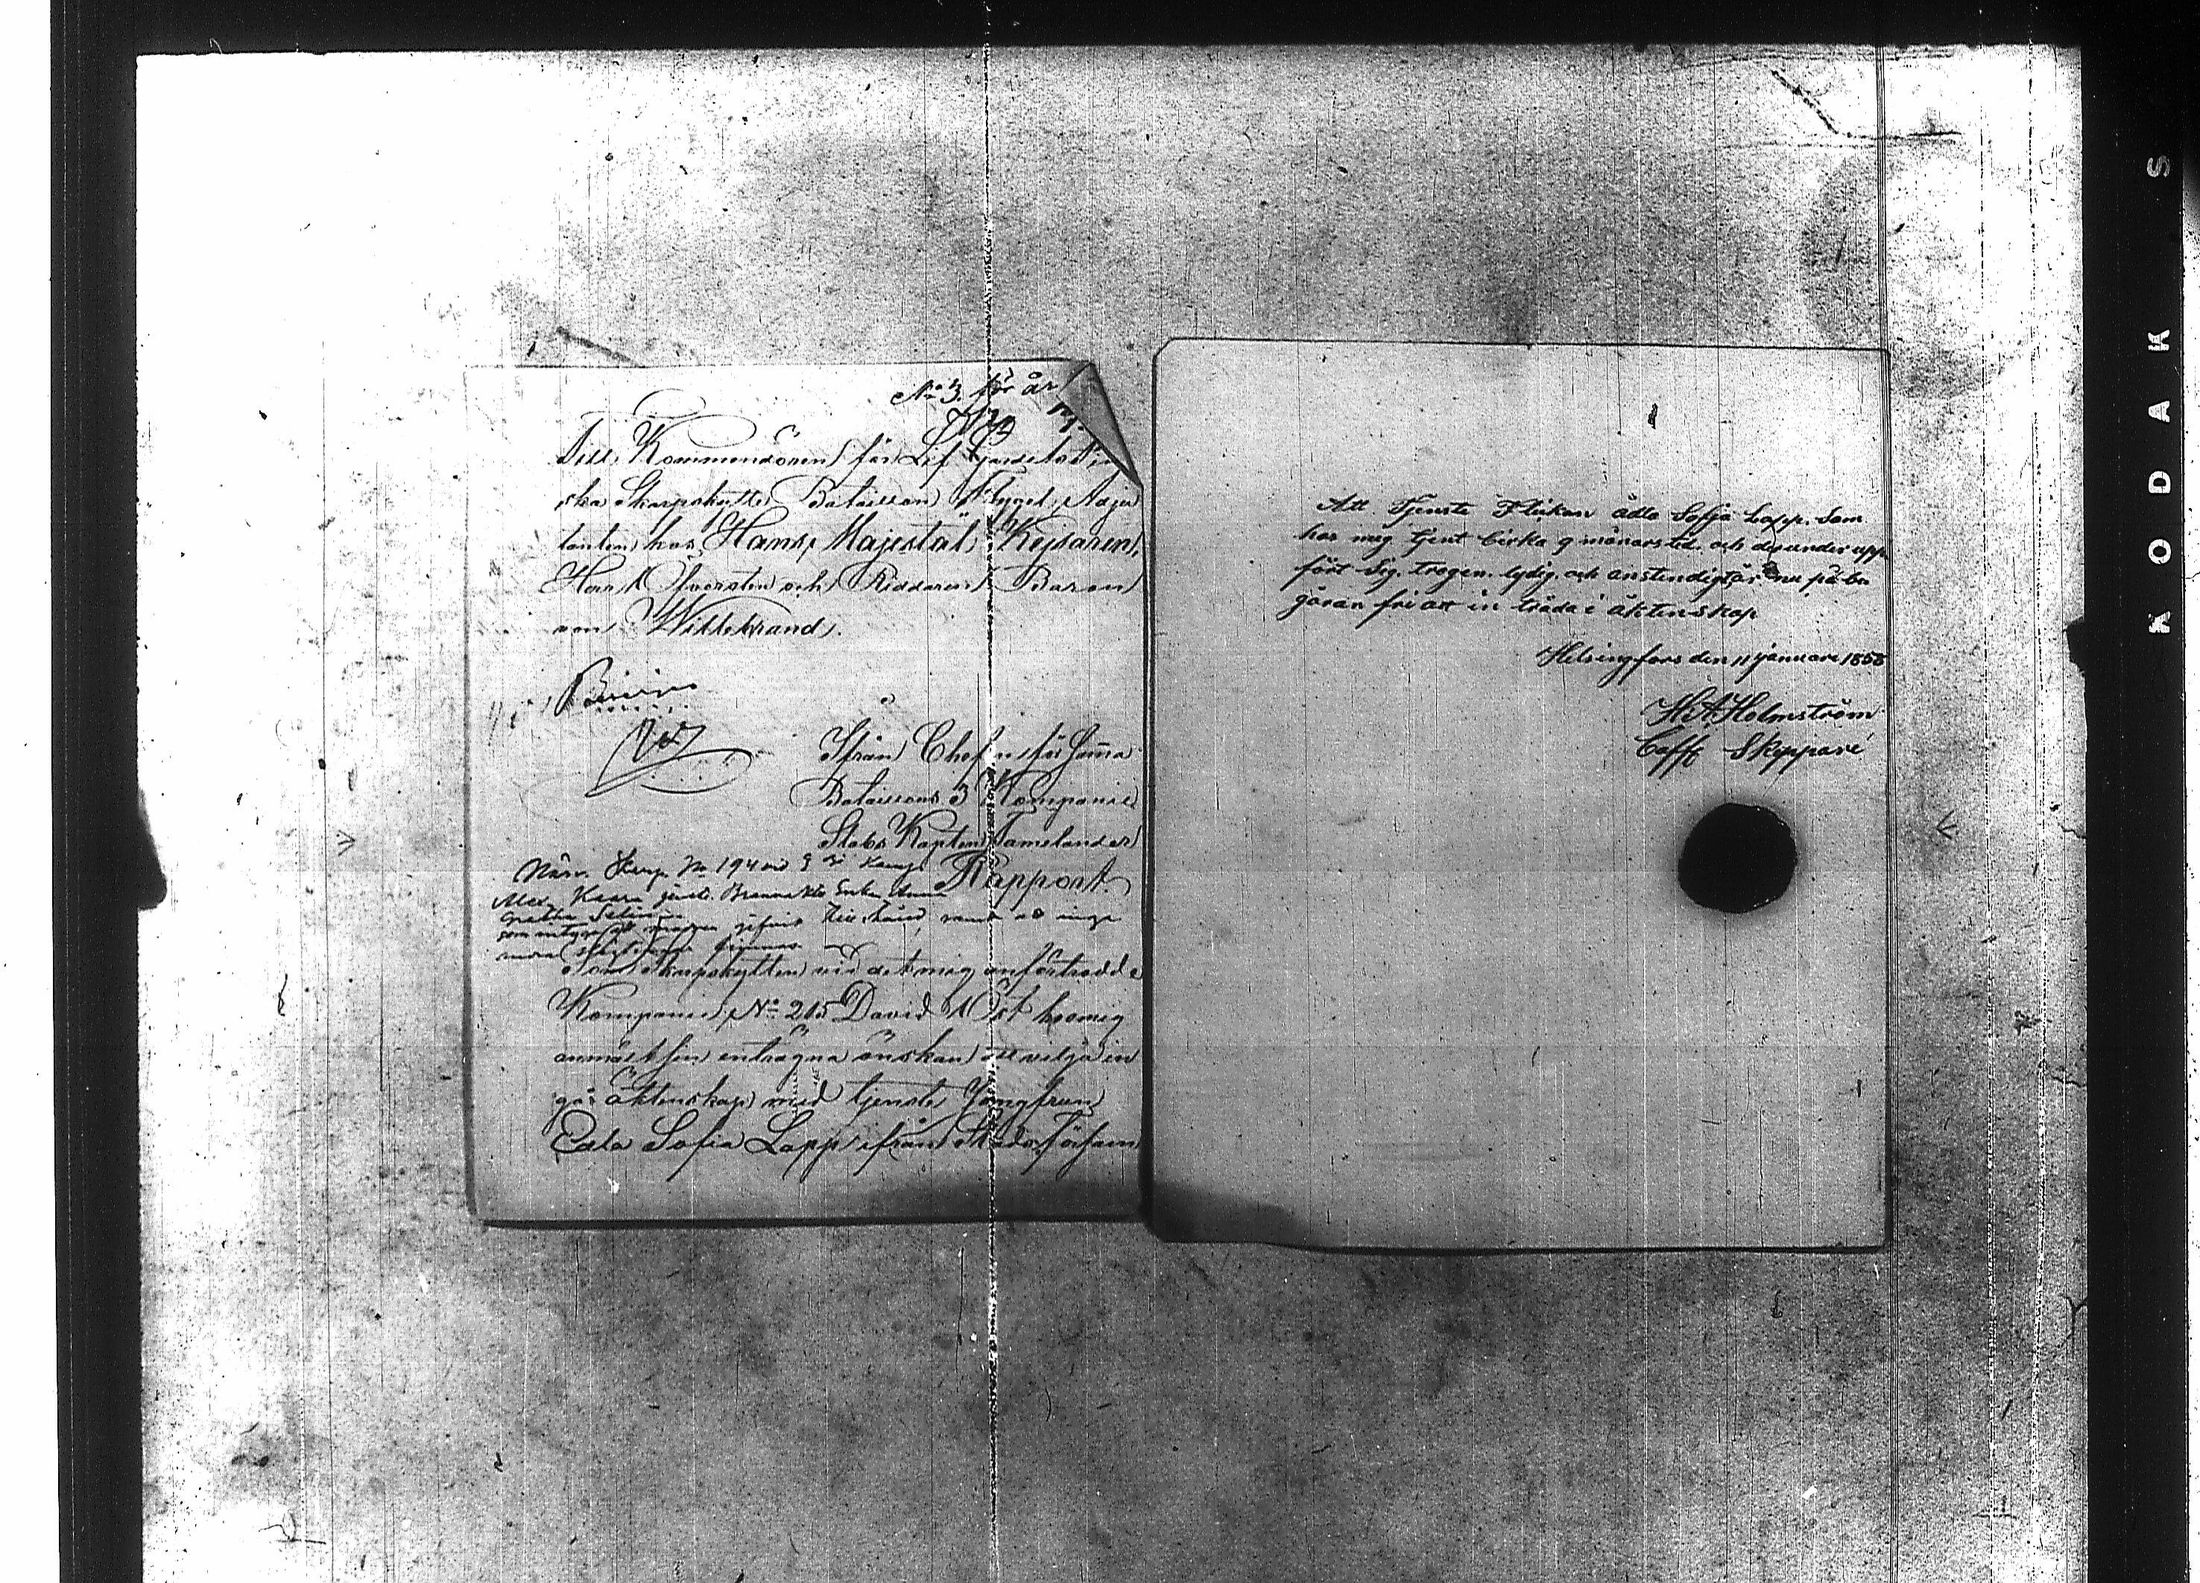 No 3. för år
Till Kommendören för Lif Gardets Fin
ska Skarpskytte Bataillon, Flygel Adju
tanten hos Hans Majestät Kejsaren,
Herr Öfversten och Riddaren Baron
von Willebrand.
Ifrån Chefen för samma
Bataillons 3 Kompanie
Stabs Kapten Tamelander
Rapport
Närv. Skarp. No 194 vid 3
Alex. Kaara
Som Skarpskytten vid det mig anförtrodde
Kompanie, No 215 David Öst hos mig
anmält sin enträgna önskan att vilja in
gå äktenskap med tjenste Jungfrun
Edla Sofia Lapp ifrån Stads Försam
Att Tjenste Flickan ädla Sofja Lapp. Som
har mig tjent Cirka 9 månars tid och derunder upp
fört Sig. trogen. lydig. och anstendigt är nu på be
gäran fri att in träda i äktenskap
Helsingfors den 11 januari 1858
H.A. Holmström
Coffe Skeppare
KODAK S